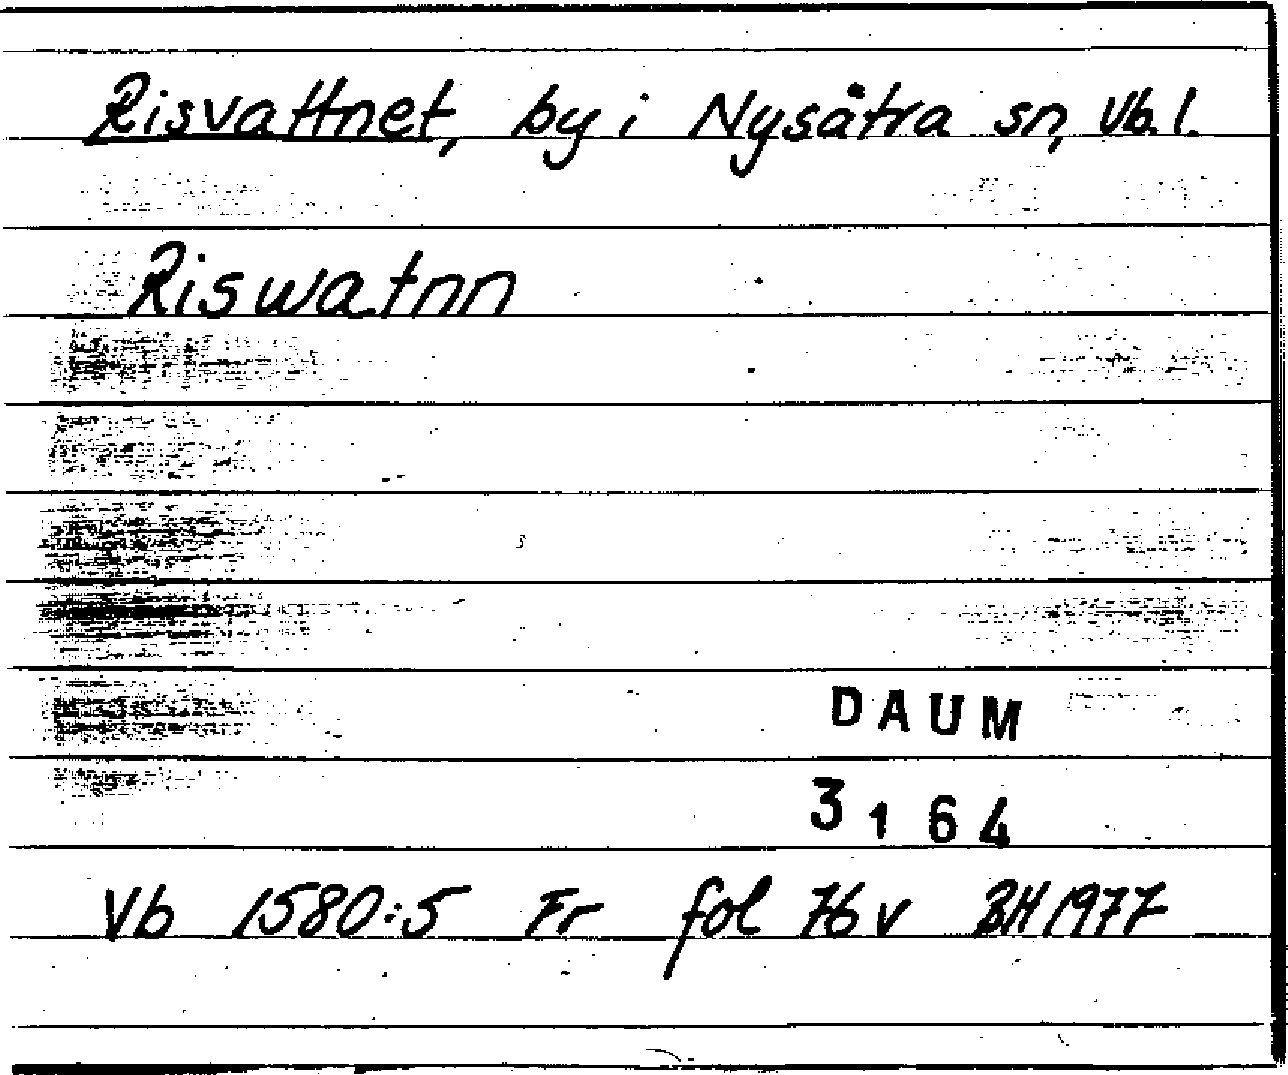 Risvattnet, by i Nysätra sn, Vb. l.
Riswatnn
DAUM
3164
Vb 1580:5 Fr fol 76 v BH 1977